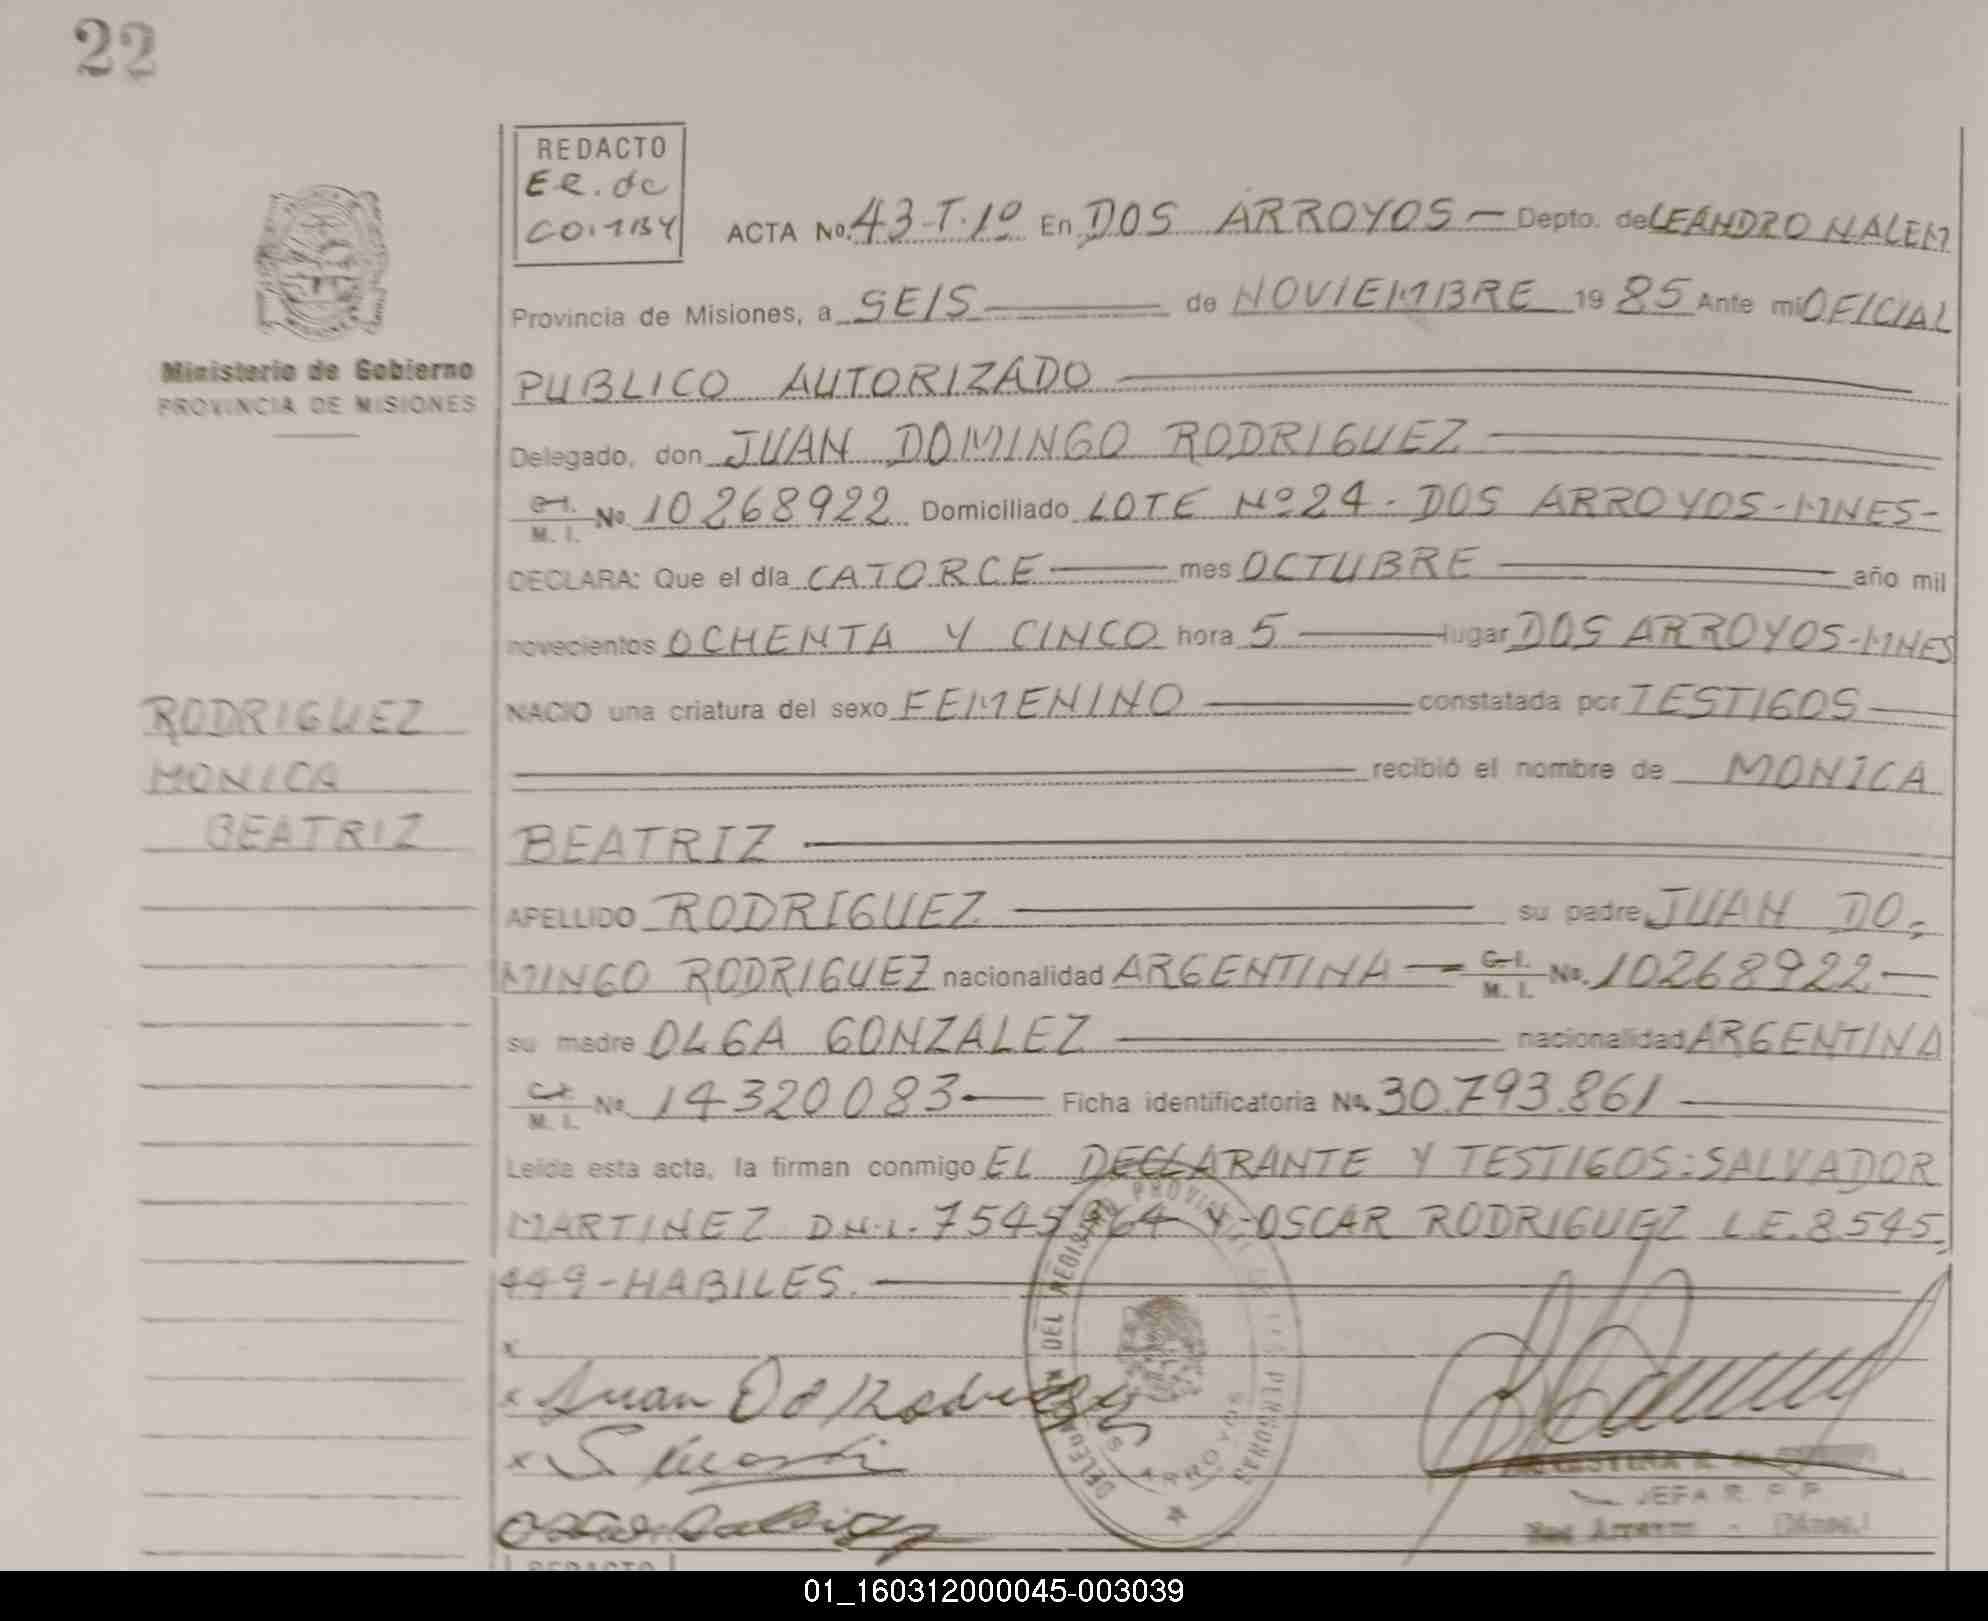 22
REDACTO
E.R. de
ACTA No. 43-T.1º En DOS ARROYOS — Depto. de LEANDRO N ALEM
Provincia de Misiones, a SEIS — de NOVIEMBRE 1985 Ante mi OFICIAL
Ministerio de Gobierno
PROVINCIA DE MISIONES
PUBLICO AUTORIZADO
Delegado, don JUAN DOMINGO RODRIGUEZ
C.I.
M. I. No. 10268922 Domiciliado LOTE Nº 24 - DOS ARROYOS-MNES-
DECLARA: Que el día CATORCE — mes OCTUBRE — año mil
novecientos OCHENTA Y CINCO hora 5 — lugar DOS ARROYOS-MNES
NACIO una criatura del sexo FEMENINO — constatada por TESTIGOS —
RODRIGUEZ
MONICA
BEATRIZ
recibió el nombre de MONICA
BEATRIZ
APELLIDO RODRIGUEZ — su padre JUAN DO-
MINGO RODRIGUEZ nacionalidad ARGENTINA — C.I. M. I. No. 10268922 —
su madre OLGA GONZALEZ — nacionalidad ARGENTINA
C.I.
M. I. No. 14320083 — Ficha identificatoria No. 30.793.861 —
Leida esta acta, la firman conmigo EL DECLARANTE Y TESTIGOS: SALVADOR
MARTINEZ D.N.I. 7545864 Y OSCAR RODRIGUEZ L.E. 8545.
449-HABILES.
DELEGACION DEL REGISTRO PROVINCIAL DE LAS PERSONAS
DOS ARROYOS
x
x Juan Do Rodriguez
x S
Oscar Rodriguez
JEFA R. P. P.
Dos Arroyos - (Mnes.)
REDACTO
01_160312000045-003039